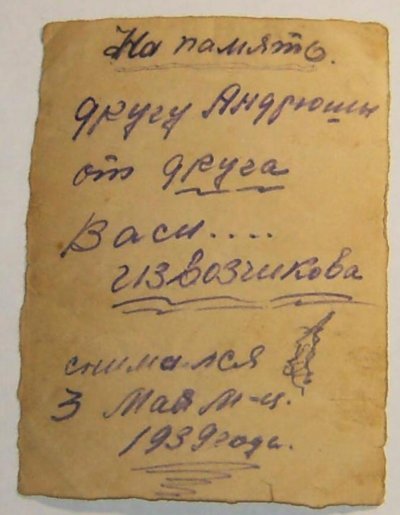 На память.
другу Андрюши
от друга
Васи....
Извозчикова
снимался
3 Мая м-ц.
1939 года.